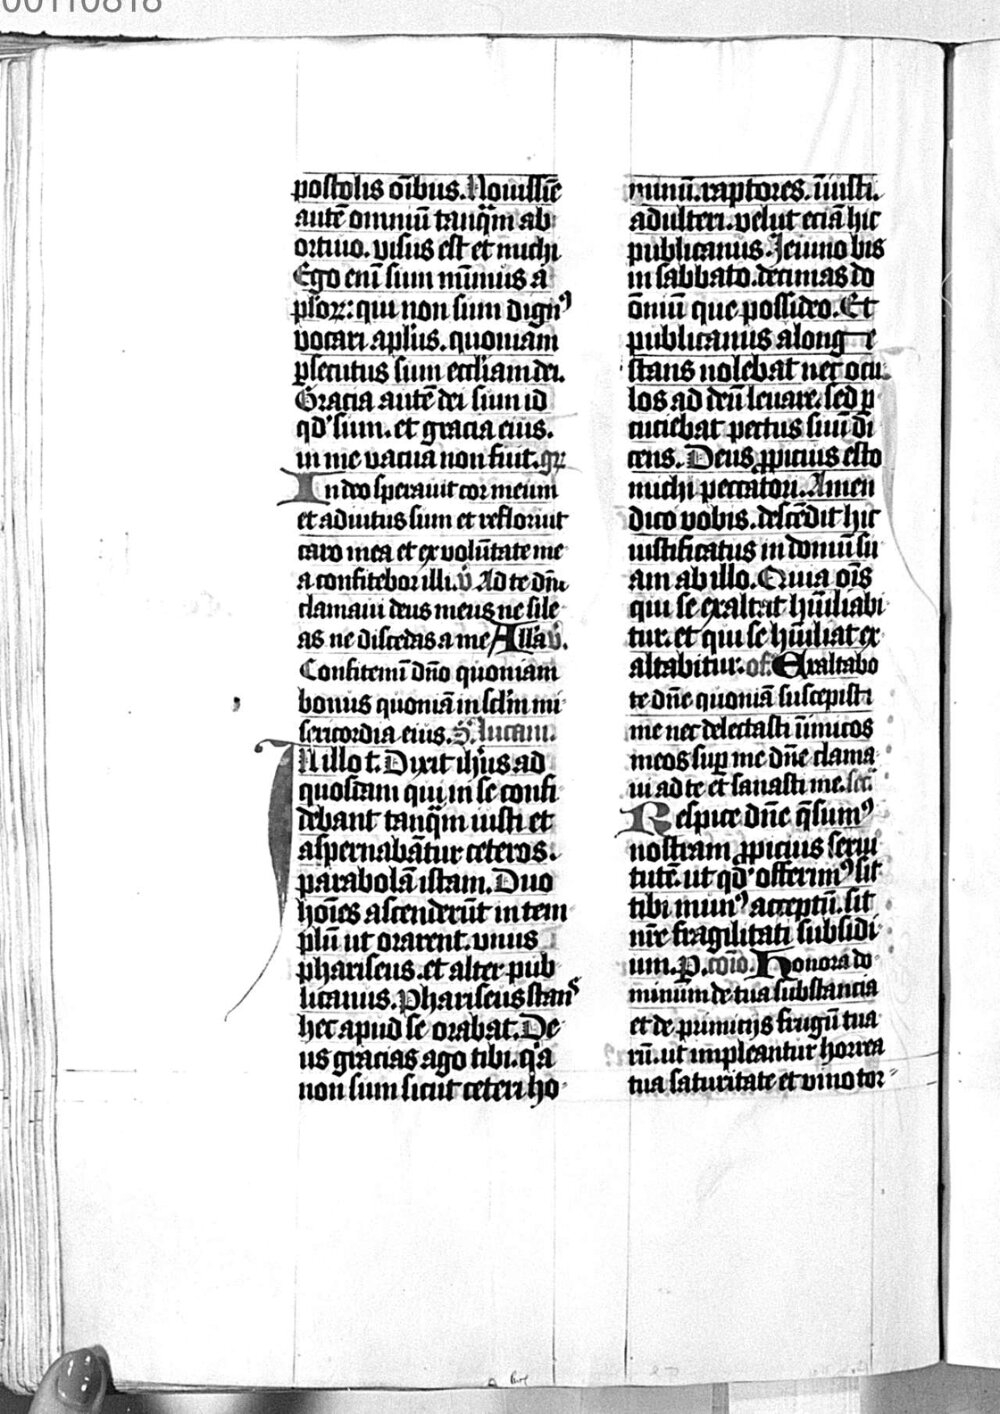 00110818
postolis oībus. Nouissīe
autē omniū tanq̄m ab
ortiuo. visus est et michi
Ego enī sum mīmus a
pl̄or: qui non sum dignꝰ
vocari apl̄us. quoniam
ꝑsecutus sum eccl̄iam dei.
Gracia autē dei sum id
qd' sum. et gracia eius.
in me vacua non fuit. gr̄
In deo sperauit cor meum
et adiutus sum et refloruit
caro mea et ex volūtate me
a confitebor illi. v̄ Ad te dn̄e
clamaui deus meus ne sile
as ne discedas a me Alla v̄.
Confitemī dn̄o quoniam
bonus quoniā in sclm̄ mi
sericordia eius. S. Lucam.
N illo t. Dixit ih̄us ad
quosdam qui in se confi
debant tanq̄m iusti et
aspernabātur ceteros.
parabolā istam. Duo
hoīes ascenderūt in tem
plū ut orarent. vnus
phariseus. et alter pub
licanus. Phariseus stans
hec apud se orabat. De
us gracias ago tibi. q̄a
non sum sicut ceteri ho
minū. raptores. iīusti.
adulteri. velut eciā hic
publicanus. Jeiuno bis
in sabbato. decimas do
ōniū que possideo. Et
publicanus a longe
stans nolebat nec ocu
los ad celū leuare. sed ꝑ
cuciebat pectus suū di
cens. Deus ꝓpicius esto
michi peccatori. Amen
dico vobis. descēdit hic
iustificatus in domū su
am ab illo. Quia oīs
qui se exaltat hūiliabi
tur. et qui se hūiliat ex
altabitur. of. Exaltabo
te dn̄e quoniā suscepisti
me nec delectasti iīmicos
meos suꝑ me dn̄e clama
ui ad te et sanasti me. sec̄
Respice dn̄e q̄sumꝰ
nostram ꝓpicius serui
tutē. ut qd' offerimꝰ sit
tibi munꝰ acceptū. sit
nr̄e fragilitati subsidi
um. P. cōio. Honora do
minum de tua substancia
et de primicijs frugū tua
rū. ut impleantur horrea
tua saturitate et vino tor